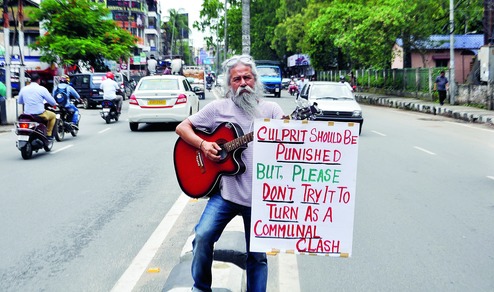 CULPRIT SHOULD BE
PUNISHED
BUT, PLEASE
DON'T TRY IT TO
TURN AS A
COMMUNAL
CLASH